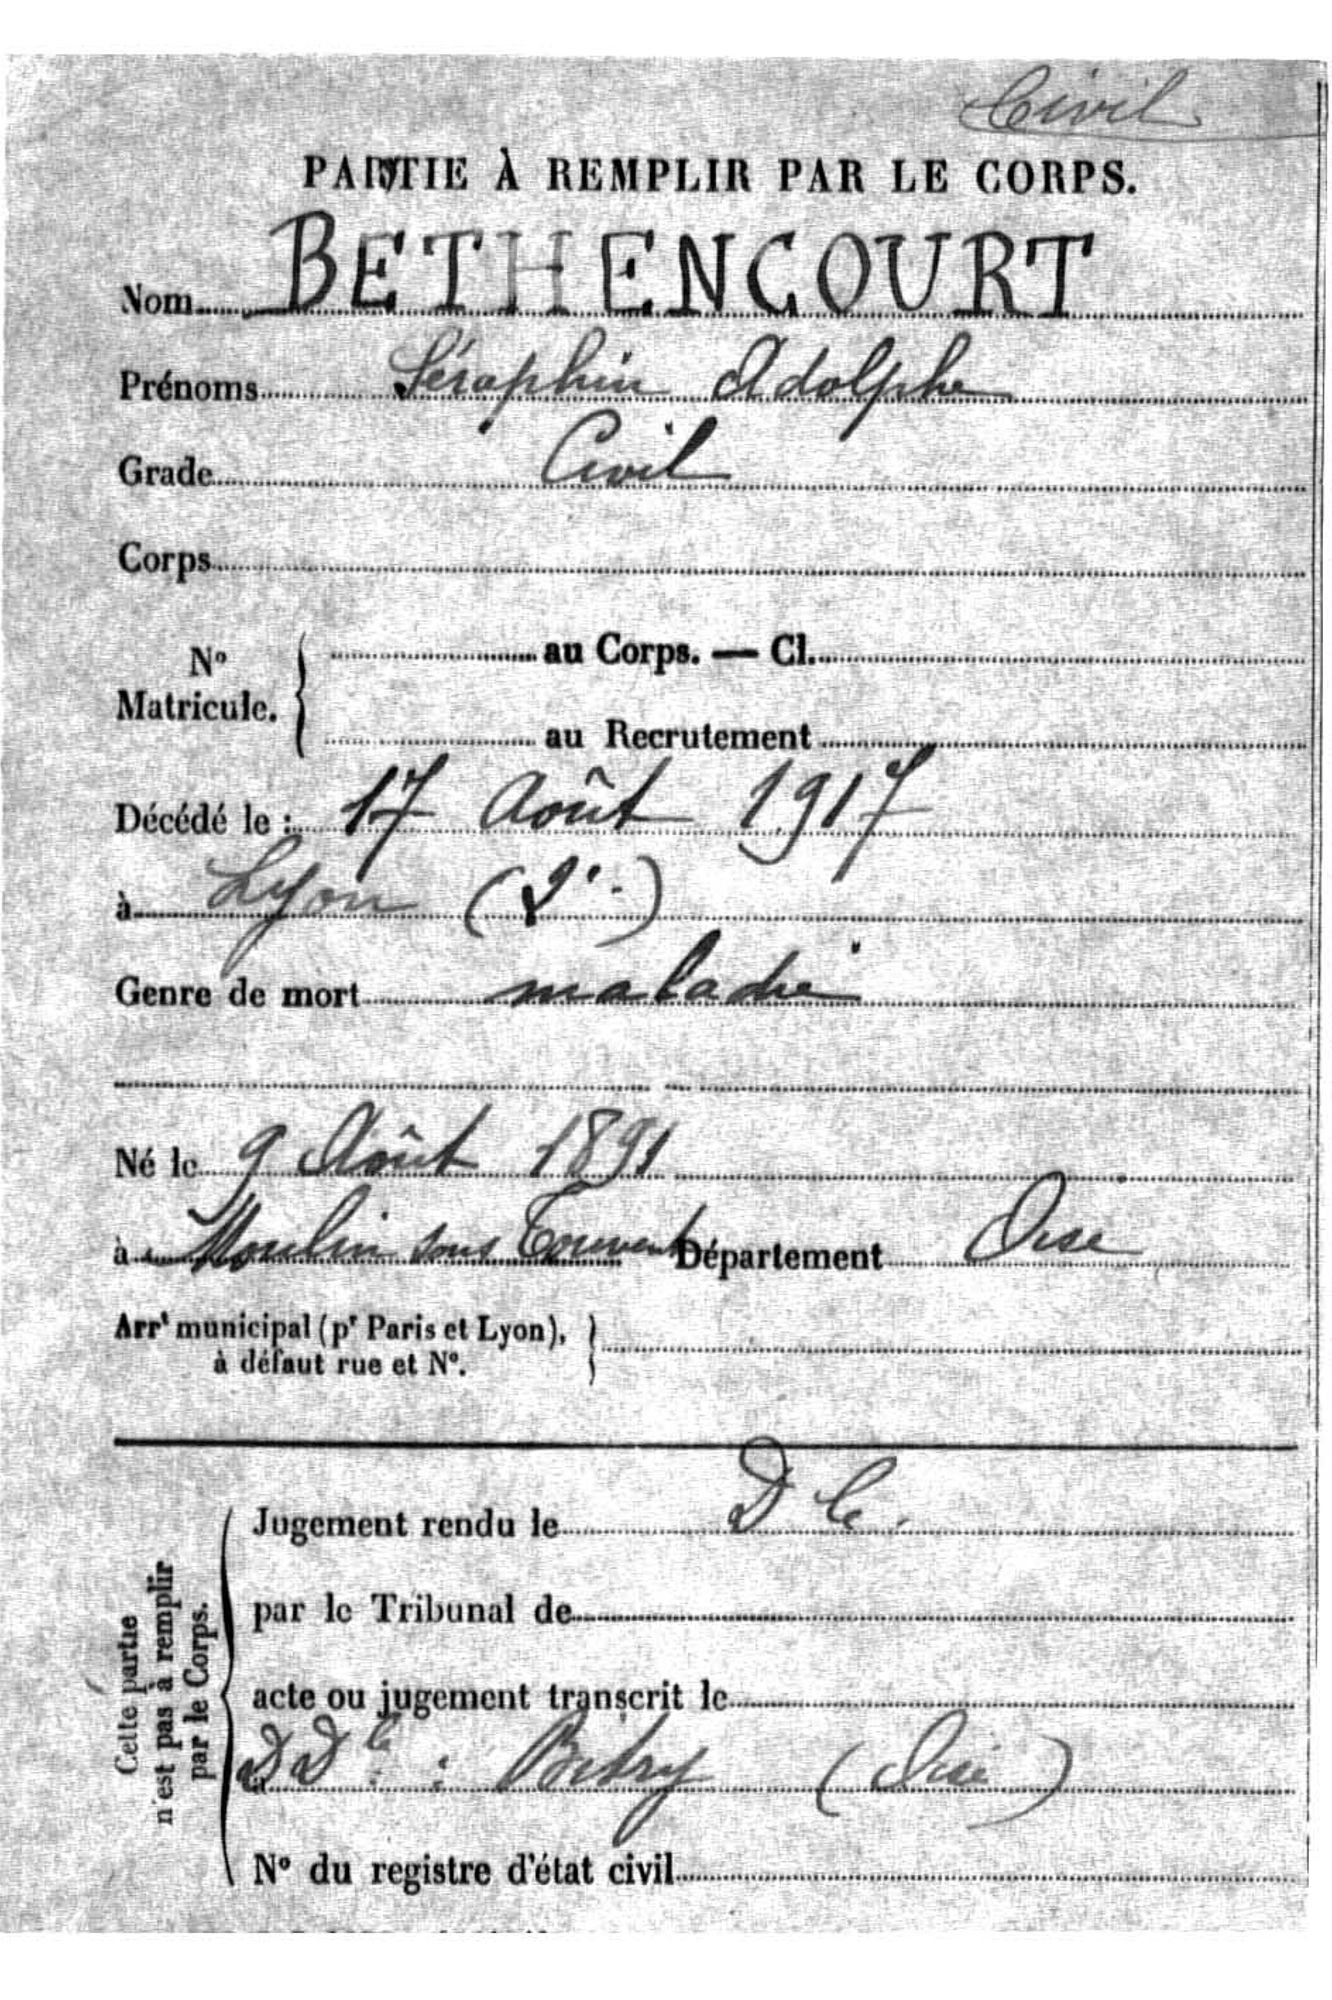 Civil
PARTIE À REMPLIR PAR LE CORPS.
Nom BETHENCOURT
Prénoms Séraphin Adolphe
Grade Civil
Corps
N° Matricule. { au Corps. — Cl.
au Recrutement
Décédé le : 17 Août 1917
à Lyon (2e)
Genre de mort maladie
Né le 9 Août 1891
à Moulin sous Touvent Département Oise
Arrt municipal (pr Paris et Lyon),
à défaut rue et N°.
Cette partie
n'est pas à remplir
par le Corps.
Jugement rendu le D C.
par le Tribunal de
acte ou jugement transcrit le
à DDle : (Oise)
N° du registre d'état civil